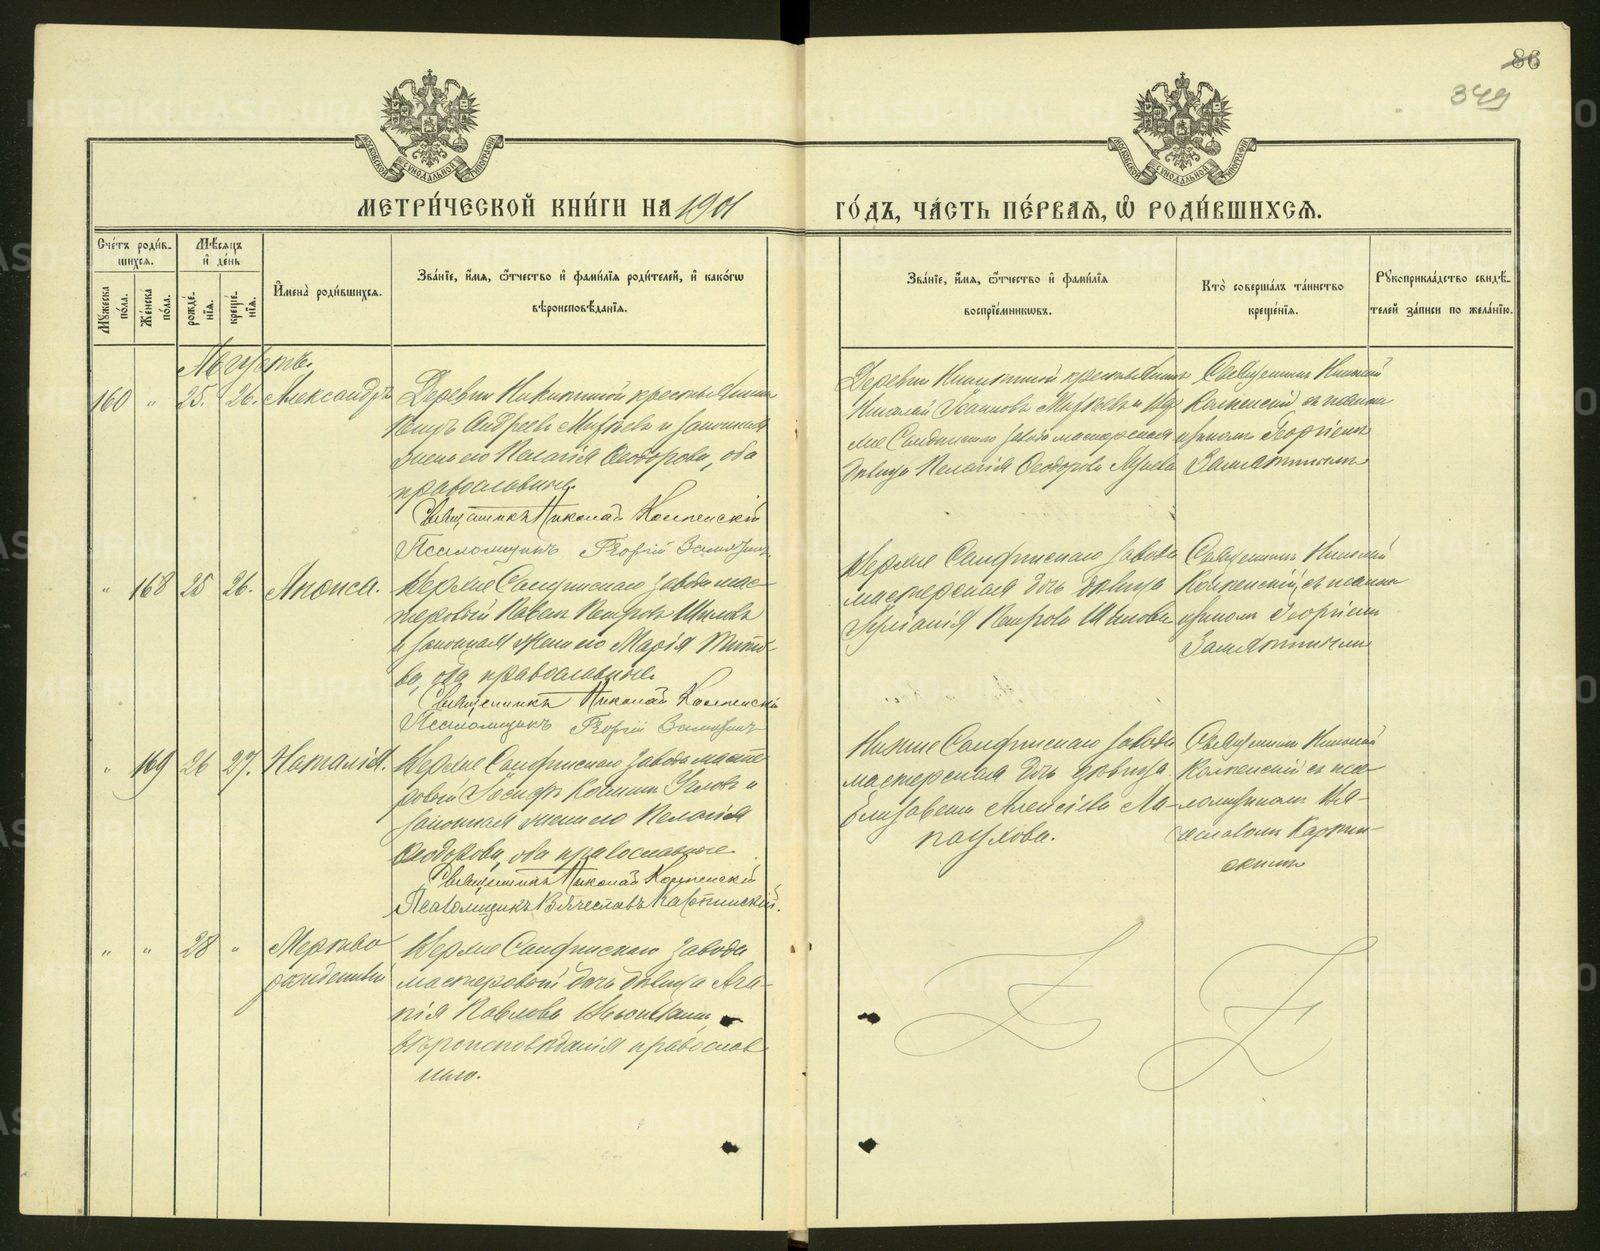 86
349
МОСКОВСКОЙ СѴНОДАЛЬНОЙ ТИПОГРАФІИ
МОСКОВСКОЙ СѴНОДАЛЬНОЙ ТИПОГРАФІИ
МЕТРИ́ЧЕСКОЙ КНИ́ГИ НА 1901
ГО́ДЪ, ЧА́СТЬ ПЕ́РВАѦ, Ѽ РОДИ́ВШИХСѦ.
Сче́тъ роди́в-
шихсѧ.
Мꙋ́жеска по́ла.
Же́нска по́ла.
Мѣ́сѧцъ
и҆ де́нь
рожде́-нїѧ.
креще́-нїѧ.
И҆мена̀ роди́вшихсѧ.
Зва́нїе, и҆́мѧ, ѻ҆́тчество и҆ фами́лїѧ роди́телей, и҆ како́гѡ
вѣроисповѣ́данїѧ.
Зва́нїе, и҆́мѧ, ѻ҆́тчество и҆ фами́лїѧ
воспрїе́мникѡвъ.
Кто̀ соверша́лъ та́инство
креще́нїѧ.
Рꙋкоприкла́дство свидѣ́-
телей за́писи по жела́нїю.
Августъ.
160 " 25. 26. Александръ
Деревни Никитиной крестьянинъ
Петръ Андреевъ и законная
жена его Пелагія Ѳеодорова, оба
православные.
Священникъ Николай Колпенскій
Псаломщикъ Георгій Замятинъ
Деревни Никитиной крестьянинъ
Николай Іоанновъ и Вер-
хне Салдинскаго завода мастерская
дѣвица Пелагія Ѳеодорова
Священникъ Николай
Колпенскій съ псалом-
щикомъ Георгіемъ
Замятинымъ
" 168 25 26.
Верхне Салдинскаго завода мас-
теровый Павелъ Петровъ Шиловъ
и законная жена его Марія Тито-
ва, оба православные.
Священникъ Николай Колпенскій
Псаломщикъ Георгій Замятинъ
Верхне Салдинскаго завода
мастерская дочь дѣвица
Петрова Шилова
Священникъ Николай
Колпенскій съ псалом-
щикомъ Георгіемъ
Замятинымъ
" 169 26 27. Наталія.
Верхне Салдинскаго завода масте-
ровый Іосифъ Козминъ и
законная жена его Пелагія
Ѳеодорова, оба православные
Священникъ Николай Колпенскій
Псаломщикъ Вячеславъ Карпинскій.
Нижне Салдинскаго завода
мастерская дочь дѣвица
Елизавета Алексіева Ла-
паухова.
Священникъ Николай
Колпенскій съ пса-
ломщикомъ Вя-
чеславомъ Карпин-
скимъ
" " 28 " Мертво
рожденный
Верхне Салдинскаго завода
мастеровой дочь дѣвица Ага-
пія Павлова
вѣроисповѣданія православ-
наго.
METRIKI.GASO-URAL.RU